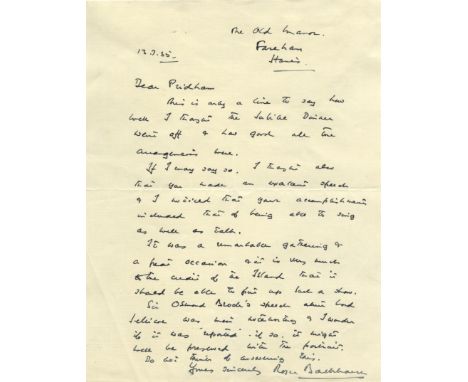 The Old Manor.
Fareham
Hants.
13.7.35.
Dear Pridham
This is only a line to say how
well I thought the Jubilee Dinner
went off & how good all the
arrangements were.
If I may say so. I thought also
that you made an excellent speech
& I noticed that your accomplishments
included that of being able to sing
as well as talk.
It was a remarkable gathering &
a great occasion & it is very much
to the credit of the Island that it
should be able to put up such a show.
Sir Osmond Brock's speech about Lord
Jellicoe was most interesting & I wonder
if it was reported. if so. it might
well be preserved with the portrait.
Do not think of answering this.
Yours sincerely Roger Backhouse